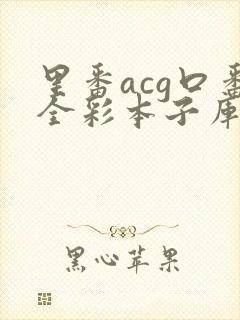 里番acg口番
全彩本子库
黑心苹果